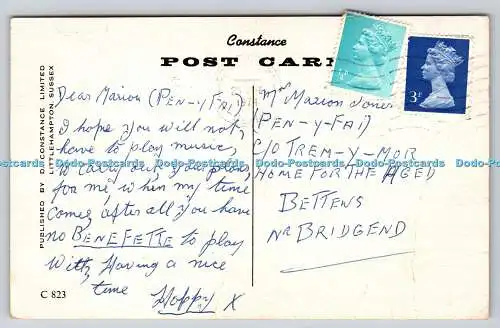 Constance
POST CARD
Dear Marion (PEN-Y-FAI)
I hope you will not,
have to play music,
to carry out your plans
for me when my time
comes, after all you have
no BENEFETTE to play
with, Having a nice
time Hoppy X
C 823
PUBLISHED BY D. CONSTANCE LIMITED
LITTLEHAMPTON, SUSSEX
3P
Mrs Marion Jones
(PEN-Y-FAI)
C/O TREM-Y-MOR
HOME FOR THE AGED
BETTENS
NR BRIDGEND
Dodo-Postcards Dodo-Postcards Dodo-Postcards Dodo-Postcards Dodo-Postcards